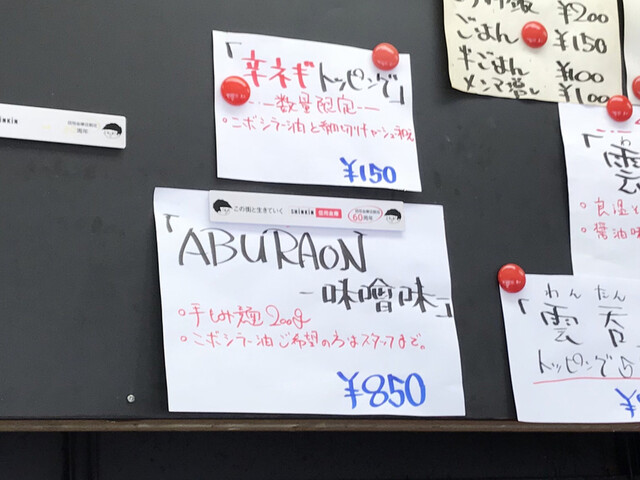 「辛ネギトッピング」
数量限定
・ニボシラー油と細切りチャーシュー和え
¥150
この街と生きていく
60周年
「ABURAON
-味噌味-」
・手もみ麺200g
・ニボシラー油ご希望の方はスタッフまで。
¥850
¥200
ごはん ¥150
半ごはん ¥100
メンマ増し ¥100
わんたん
「雲呑
トッピング5